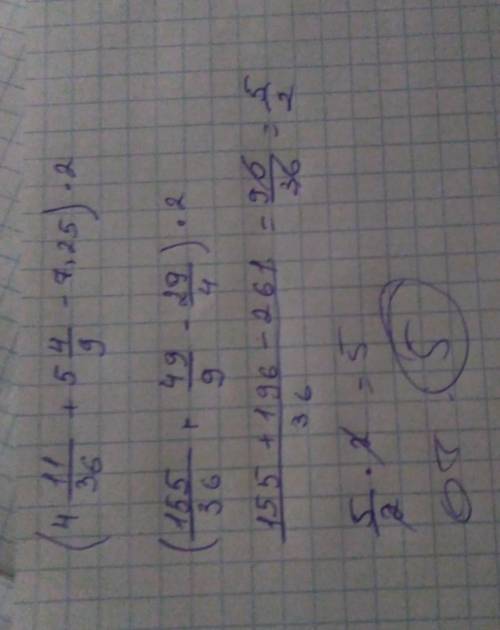 (4 11/36 + 5 4/9 - 7,25) · 2
(155/36 + 49/9 - 29/4) · 2
(155 + 196 - 261)/36 = 90/36 = 5/2
5/2 · 2 = 5
5